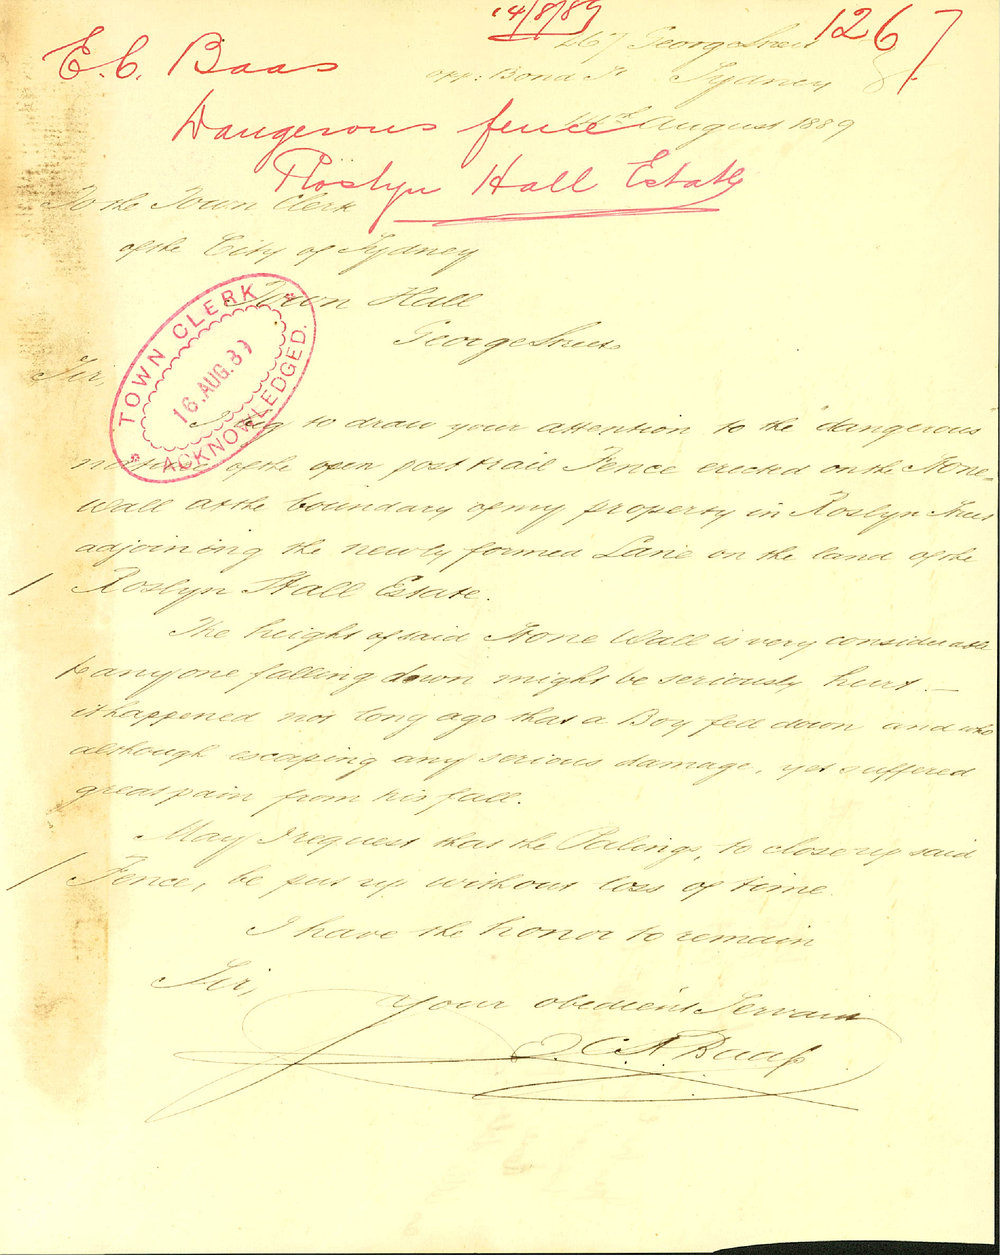 14/8/89
1267
E. C. Baas
467 George Street
opp: Bond St. Sydney
14th August 1889
Dangerous fence
Roslyn Hall Estate
To the Town Clerk
of the City of Sydney
Town Hall
George Street
TOWN CLERK
16.AUG.89
ACKNOWLEDGED.
Sir,
I beg to draw your attention to the "dangerous"
nature of the open post & rail Fence erected on the Stone-
wall at the boundary of my property in Roslyn Street
adjoining the newly formed Lane on the land of the
Roslyn Hall Estate.
The height of said Stone Wall is very considerable
& anyone falling down might be seriously hurt. —
it happened not long ago that a Boy fell down and who
although escaping any serious damage, yet suffered
great pain from his fall.
May I request that the Palings, to close up said
Fence, be put up without loss of time.
I have the honor to remain
Sir,
Your obedient Servant
C. A. Baass